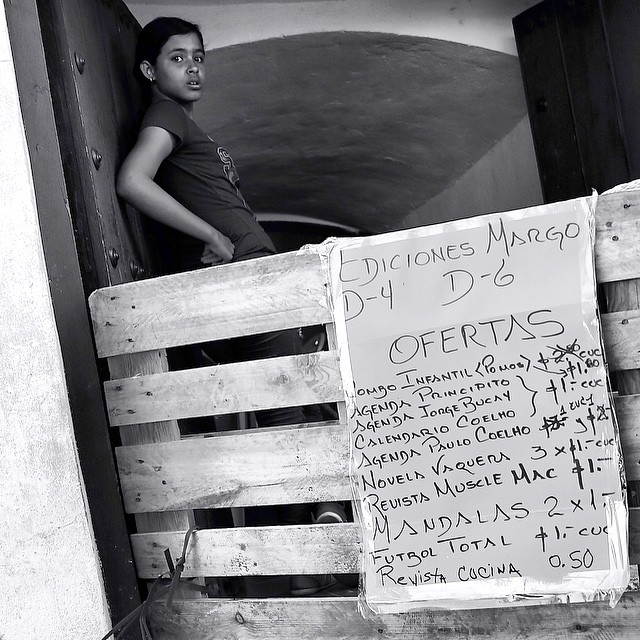 EDICIONES MARGO
D-4 D-6
OFERTAS
COMBO INFANTIL (PONOS) $1.80 CUC
AGENDA PRINCIPITO
AGENDA JORGE BUCAY } $1.- CUC
CALENDARIO COELHO
AGENDA PAULO COELHO
NOVELA VAQUERA 3 x $1.- CUC
REVISTA MUSCLE MAC $1.-
MANDALAS 2 x 1.-
FUTBOL TOTAL $1.- CUC
REVISTA COCINA 0.50